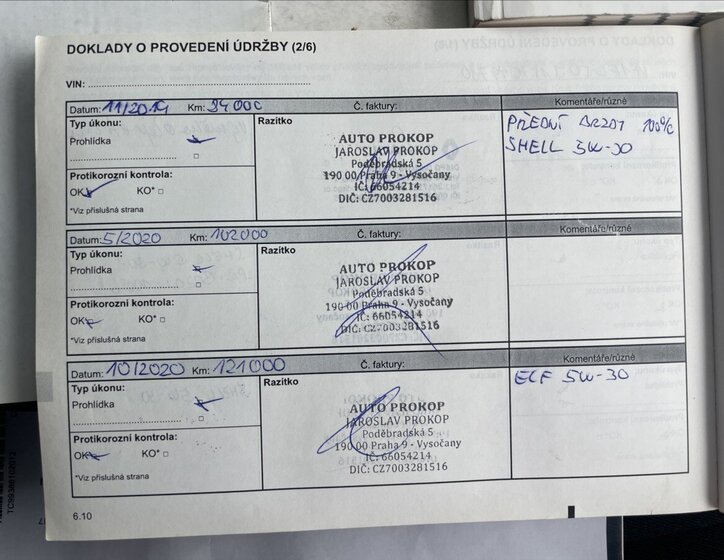 DOKLADY O PROVEDENÍ ÚDRŽBY (2/6)
VIN:
Datum: 11/2019 Km: 94 000 Č. faktury: Komentáře/různé
Typ úkonu: Razítko PŘEDNÍ BRZDY 100%
Prohlídka SHELL 5W-30
AUTO PROKOP
JAROSLAV PROKOP
Poděbradská 5
190 00 Praha 9 - Vysočany
IČ: 66054214
DIČ: CZ7003281516
Protikorozní kontrola:
OK KO*
*Viz příslušná strana
Datum: 5/2020 Km: 102000 Č. faktury: Komentáře/různé
Typ úkonu: Razítko
Prohlídka
AUTO PROKOP
JAROSLAV PROKOP
Poděbradská 5
190 00 Praha 9 - Vysočany
IČ: 66054214
DIČ: CZ7003281516
Protikorozní kontrola:
OK KO*
*Viz příslušná strana
Datum: 10/2020 Km: 121000 Č. faktury: Komentáře/různé
Typ úkonu: Razítko ELF 5W-30
Prohlídka
AUTO PROKOP
JAROSLAV PROKOP
Poděbradská 5
190 00 Praha 9 - Vysočany
IČ: 66054214
DIČ: CZ7003281516
Protikorozní kontrola:
OK KO*
*Viz příslušná strana
6.10